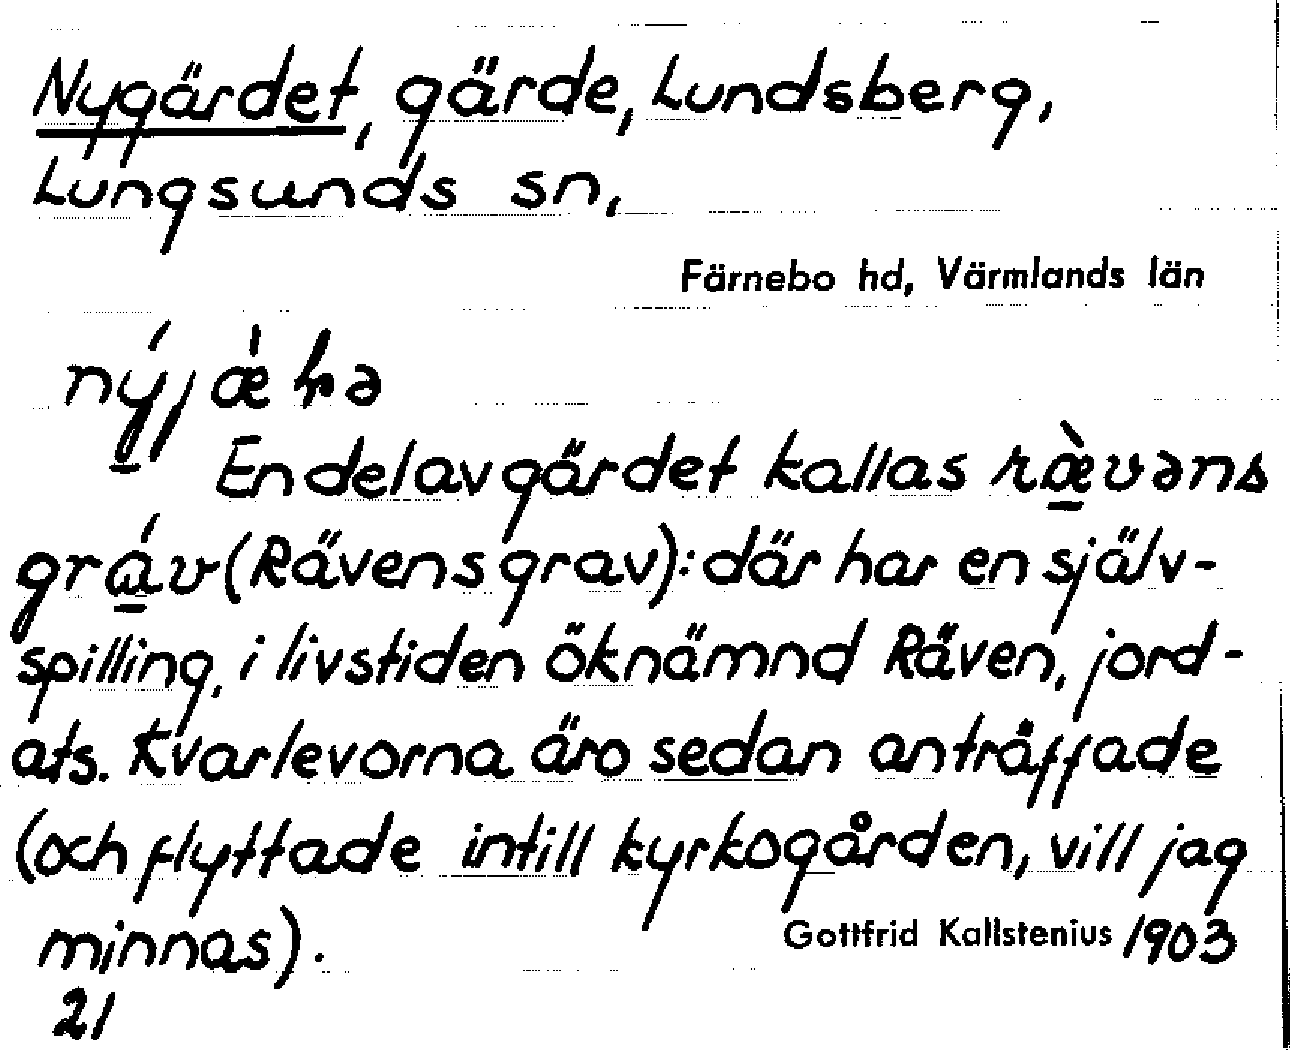 Nygärdet, gärde, Lundsberg,
Lungsunds sn,
Färnebo hd, Värmlands län
En del av gärdet kallas ræ̀vəns
gráv (Rävens grav): där har en själv-
spilling, i livstiden öknämnd Räven, jord-
ats. Kvarlevorna äro sedan anträffade
(och flyttade intill kyrkogården, vill jag
minnas).
Gottfrid Kallstenius 1903
21